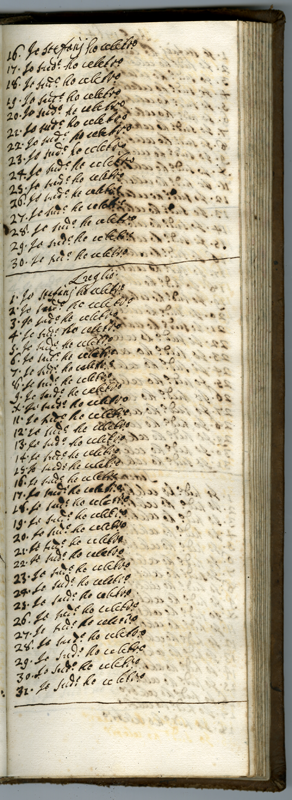 16. Io Steffanj ho celebro
17. Io sud.o ho celebro
18. Io sud.o ho celebro
19. Io sud.o ho celebro
20. Io sud.o ho celebro
21. Io sud.o ho celebro
22. Io sud.o ho celebro
23. Io sud.o ho celebro
24. Io sud.o ho celebro
25. Io sud.o ho celebro
26. Io sud.o ho celebro
27. Io sud.o ho celebro
28. Io sud.o ho celebro
29. Io sud.o ho celebro
30. Io sud.o ho celebro
Luglio
1. Io Steffanj ho celebro
2. Io sud.o ho celebro
3. Io sud.o ho celebro
4. Io sud.o ho celebro
5. Io sud.o ho celebro
6. Io sud.o ho celebro
7. Io sud.o ho celebro
8. Io sud.o ho celebro
9. Io sud.o ho celebro
10. Io sud.o ho celebro
11. Io sud.o ho celebro
12. Io sud.o ho celebro
13. Io sud.o ho celebro
14. Io sud.o ho celebro
15. Io sud.o ho celebro
16. Io sud.o ho celebro
17. Io sud.o ho celebro
18. Io sud.o ho celebro
19. Io sud.o ho celebro
20. Io sud.o ho celebro
21. Io sud.o ho celebro
22. Io sud.o ho celebro
23. Io sud.o ho celebro
24. Io sud.o ho celebro
25. Io sud.o ho celebro
26. Io sud.o ho celebro
27. Io sud.o ho celebro
28. Io sud.o ho celebro
29. Io sud.o ho celebro
30. Io sud.o ho celebro
31. Io sud.o ho celebro